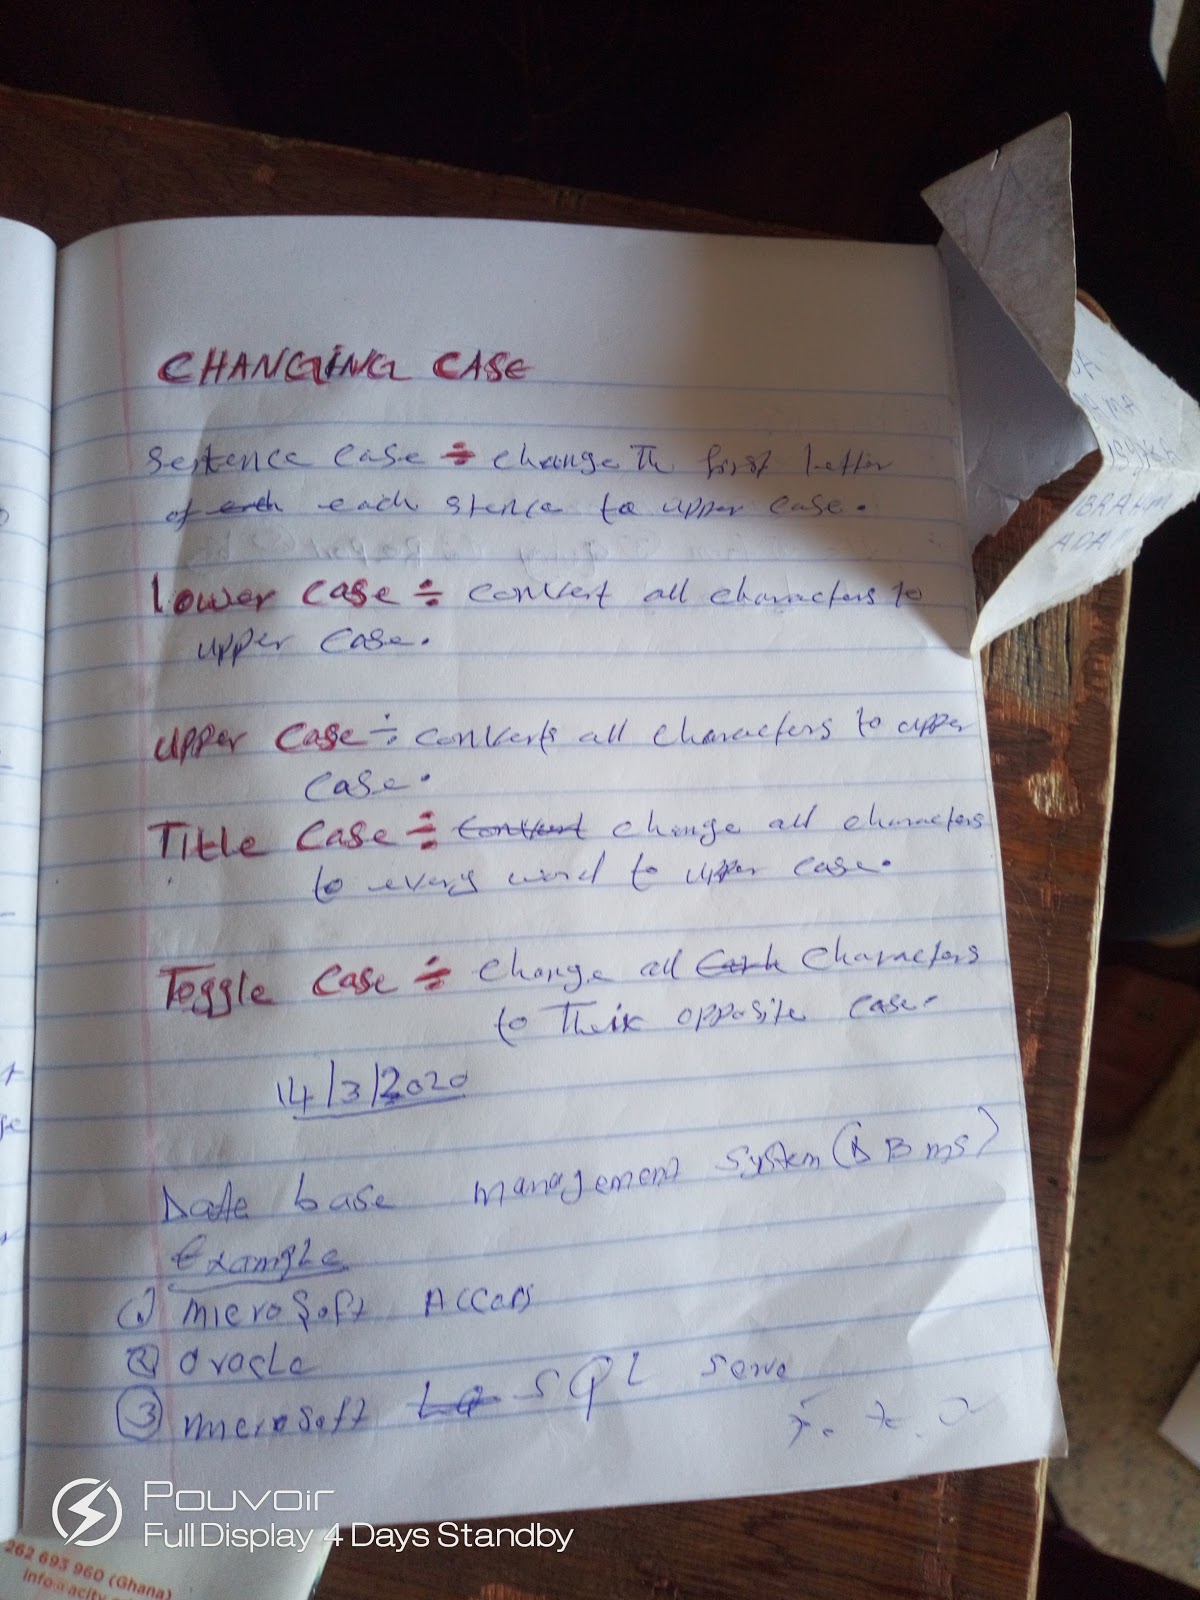 CHANGING CASE
Sentence case ÷ change Th first letter
of each each stence to upper case.
Lower case ÷ convert all characters to
upper case.
Upper case ÷ converts all characters to upper
case.
Title case ÷ Convert change all characters
to every word to upper case.
Toggle case ÷ change all characters
to Their opposite case.
14/3/2020
Date base management system (DBMS)
Example
(1) microsoft Accers
(2) oracle
(3) microsoft SQL serve
P.T.O
MA
IBRAHIM
ADA
Pouvoir
Full Display 4 Days Standby
262 693 960 (Ghana)
info@acity